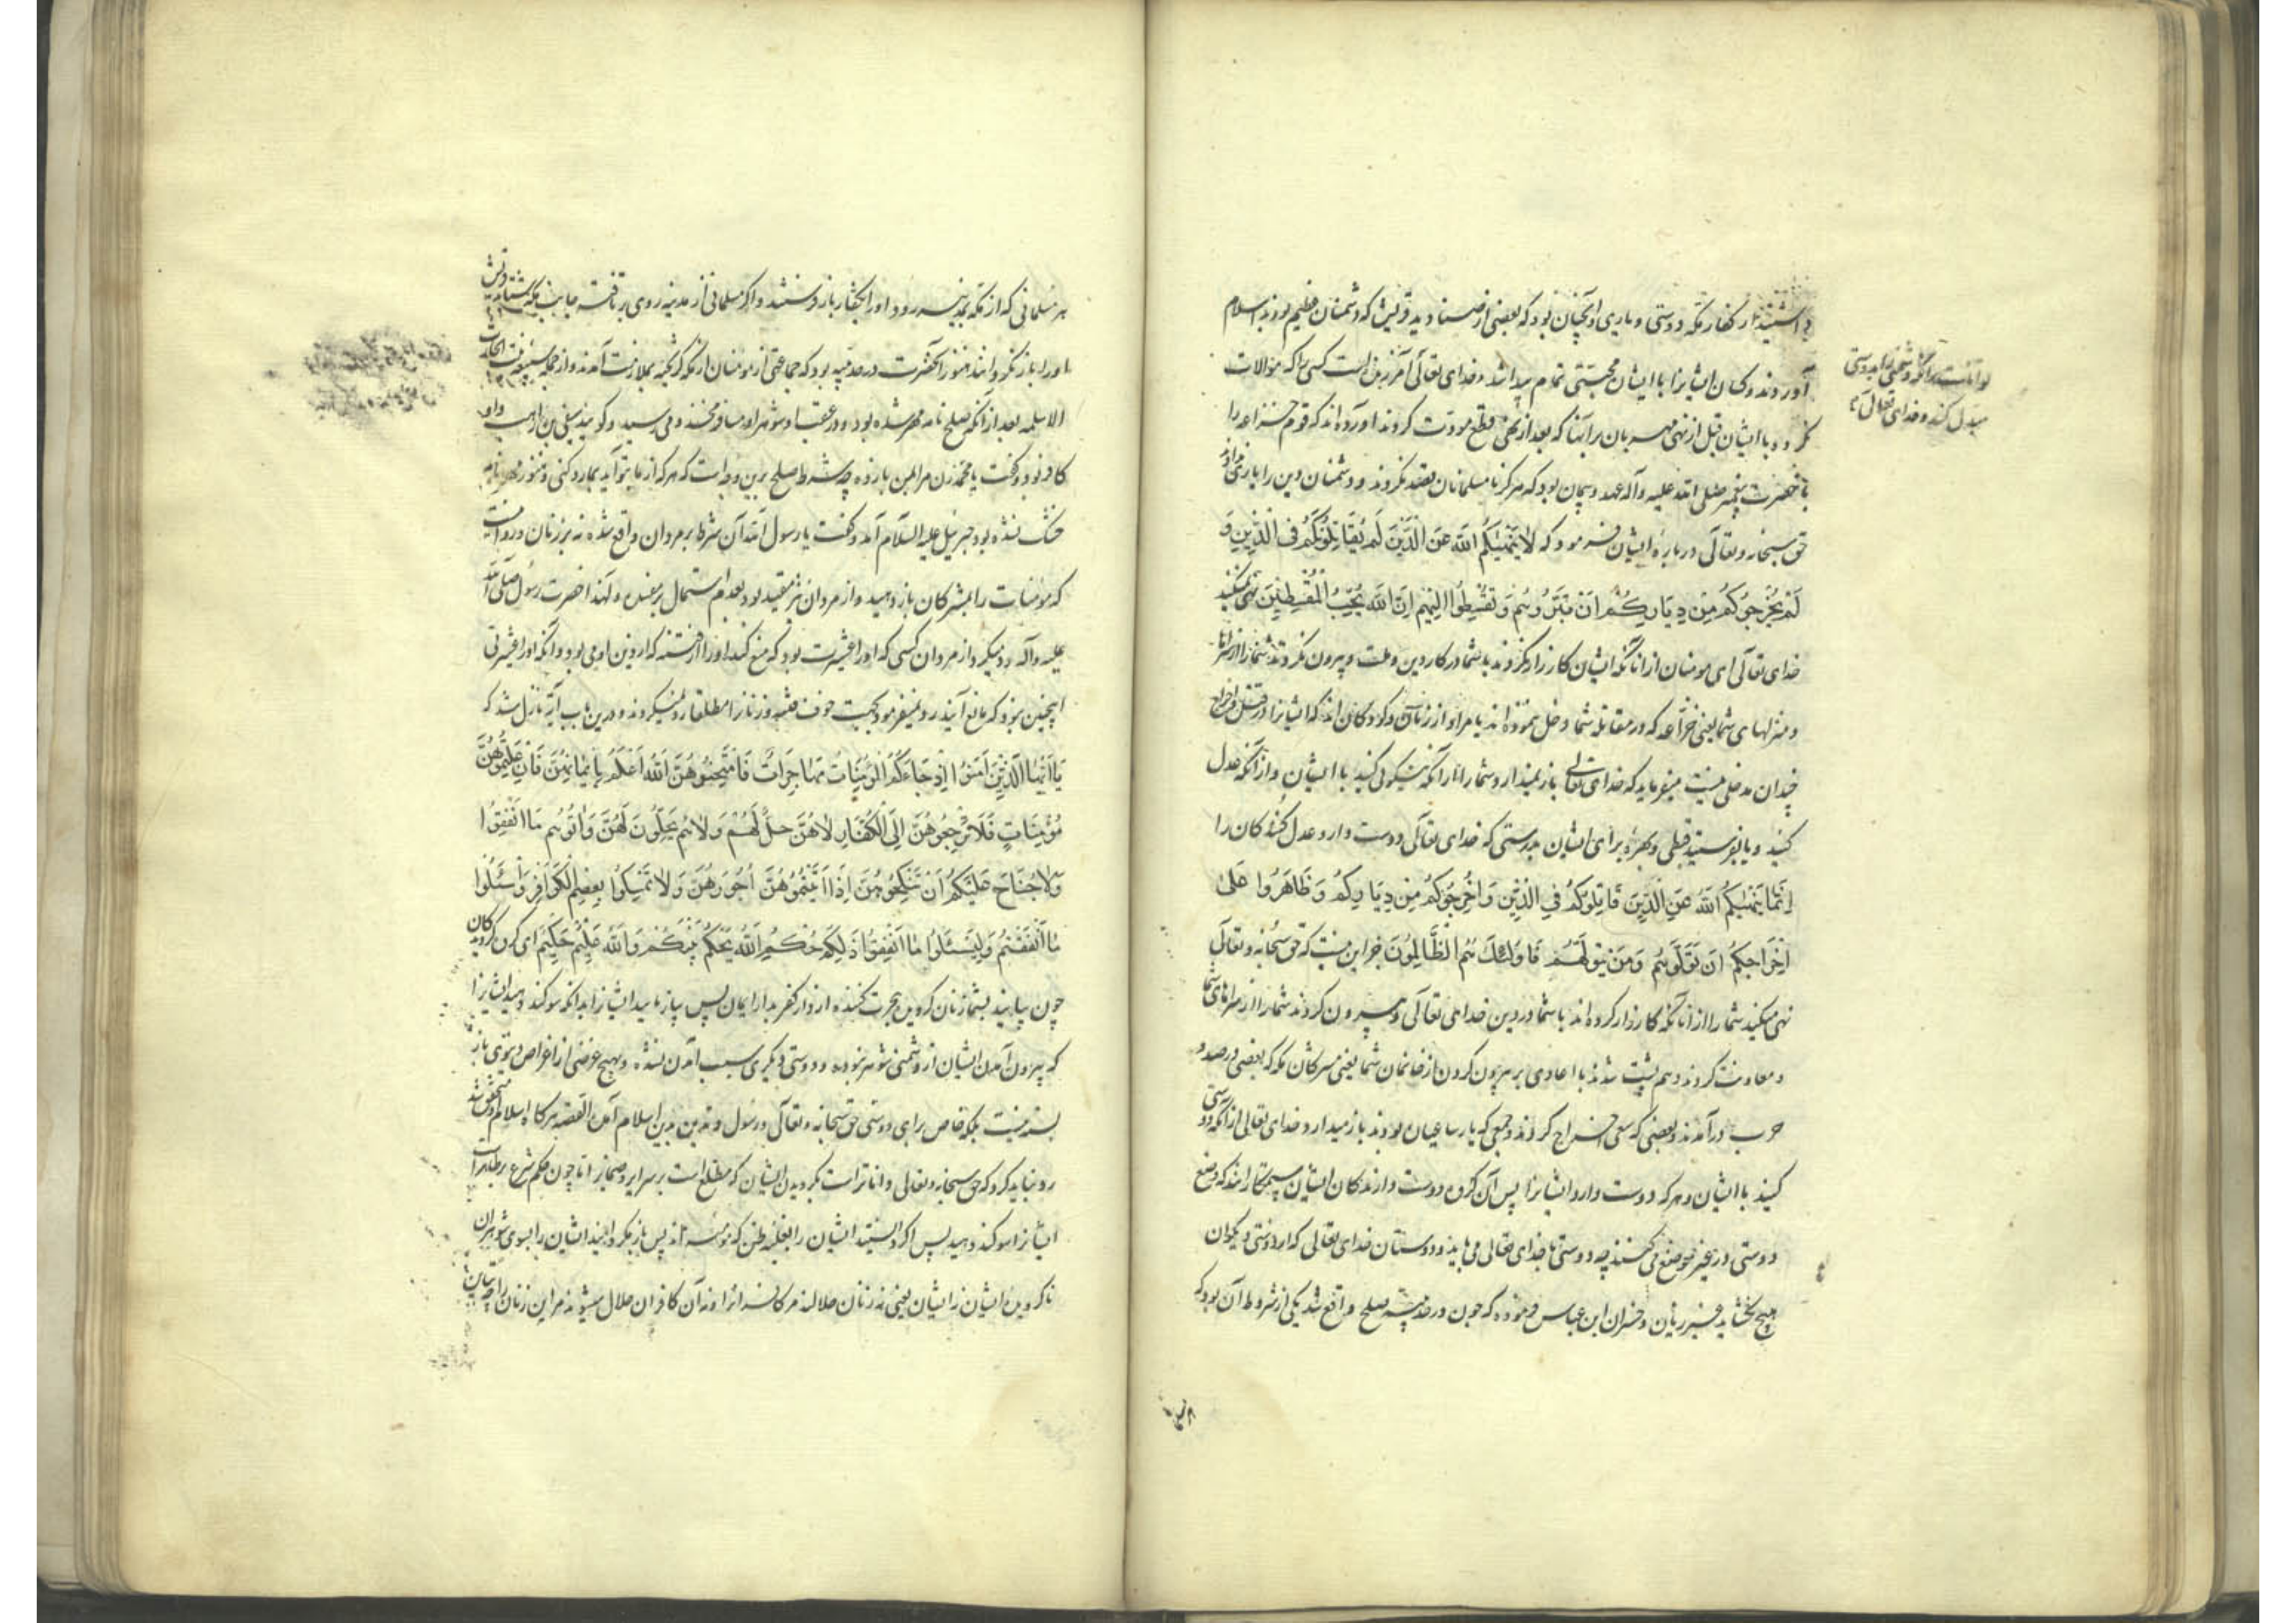 داشتند از کفار مکه دوستی و یاری و آنچنان بود که بعضی از صنادید قریش که دشمنان عظیم بودند باسلام
آوردند و کسان ایشانرا با ایشان محبتی تمام پیدا شد و خدای تعالی آمرزنده است کسی را که موالات
کرده با ایشان قبل از نهی مهربان برآنها که بعد از نهی قطع مودت کردند آورده‌اند که قوم خزاعه را
با حضرت پیغمبر صلی الله علیه وآله عهد و پیمان بود که هرگز با مسلمانان نکردند و دشمنان دین را یاری
حق سبحانه وتعالی درباره ایشان فرمود که لَا یَنْهٰیکُمُ اللّٰهُ عَنِ الَّذِینَ لَمْ یُقَاتِلُوکُمْ فِی الدِّینِ وَ
لَمْ یُخْرِجُوکُمْ مِنْ دِیَارِکُمْ اَنْ تَبَرُّوهُمْ وَ تُقْسِطُوا اِلَیْهِمْ اِنَّ اللّٰهَ یُحِبُّ الْمُقْسِطِینَ نهی نمیکند
خدای تعالی ای مومنان از آنانکه ایشان کارزار نکردند با شما در کار دین و ملت و بیرون نکردند شما را از سراها
و منزلهای شما یعنی خزاعه که در مقاتله شما دخل ننموده‌اند یا مراد از زنان و کودکان‌اند که ایشانرا در قتل و اخراج
چندان مدخلی نیست میفرماید که خدای تعالی باز نمیدارد شما را از آنکه نیکوئی کنید با ایشان و از آنکه عدل
کنید و یا بفرستید قسطی و بهره برای ایشان بدرستی که خدای تعالی دوست دارد عدل کنندگان را
اِنَّمَا یَنْهٰیکُمُ اللّٰهُ عَنِ الَّذِینَ قَاتَلُوکُمْ فِی الدِّینِ وَ اَخْرَجُوکُمْ مِنْ دِیَارِکُمْ وَ ظَاهَرُوا عَلٰی
اِخْرَاجِکُمْ اَنْ تَوَلَّوْهُمْ وَ مَنْ یَتَوَلَّهُمْ فَاُولٰئِکَ هُمُ الظَّالِمُونَ جز این نیست که حق سبحانه وتعالی
نهی میکند شما را از آنانکه کارزار کرده‌اند با شما در دین خدای تعالی و بیرون کردند شما را از سراهای شما
و معاونت کردند و هم پشت شدند با اعادی بر بیرون کردن از خانمان شما یعنی سرکشان مکه که بعضی در صدد
حرب درآمدند و بعضی که سعی اخراج کردند و جمعی که یار ساعیان بودند باز میدارد خدای تعالی از آنکه دوستی
کنید با ایشان و هرکه دوست دارد ایشانرا پس آن گروه دوست دارندگان ایشان ستمکارانند که وضع
دوستی در غیر موضع می‌کنند چه دوستی با خدای تعالی می‌باید و دوستان خدای تعالی که از دوستی دیگران
هیچ نگشاید غیر زیان و خسران ابن عباس فرموده که چون در حدیبیه صلح واقع شد یکی از شروط آن بود که
توانا است برآنکه دشمنی را بدوستی
مبدل کند و خدای تعالی
هر مسلمانی که از مکه بمدینه رود او را بکفار باز فرستند و اگر مسلمانی از مدینه روی برتافته جانب مکه
او را باز نگردانند هنوز آنحضرت در حدیبیه بود که جماعتی از مومنان از مکه گریخته بملازمت آمدند و از جمله سبیعه بنت الحارث
الاسلمیه بعد از آنکه صلح نامه مهر شده بود و در عقب او شوهر او مسافر مخزومی رسید و گویند صیفی بن راهب و او
کافر بود و گفت یا محمد زن مرا بمن باز ده چه شرط صلح برین وجه است که هرکه از ما بتو آید بما رد کنی و هنوز مهر نامه
خشک نشده بود جبرئیل علیه السلام آمد و گفت یا رسول الله آن شرط بر مردان واقع شده نه بر زنان و روا نیست
که مومنات را بمشرکان باز دهید و از مردان نیز مقید بود بعدم استمال بر نفس و لهذا حضرت رسول صلی الله
علیه وآله رد نمیکرد از مردان کسی که او را عشیرت نبود که منع کند او را از فتنه که از دین او می بود و آنکه او را عشیرتی
اینچنین بود که مانع آیند رد میفرمود بجهت خوف فتنه و زنانرا مطلقا رد نمیکردند و درین باب آیه نازل شد که
یَا اَیُّهَا الَّذِینَ اٰمَنُوا اِذَا جَاءَکُمُ الْمُؤْمِنَاتُ مُهَاجِرَاتٍ فَامْتَحِنُوهُنَّ اَللّٰهُ اَعْلَمُ بِاِیمَانِهِنَّ فَاِنْ عَلِمْتُمُوهُنَّ
مُؤْمِنَاتٍ فَلَا تَرْجِعُوهُنَّ اِلَی الْکُفَّارِ لَا هُنَّ حِلٌّ لَهُمْ وَ لَا هُمْ یَحِلُّونَ لَهُنَّ وَ اٰتُوهُمْ مَا اَنْفَقُوا
وَ لَا جُنَاحَ عَلَیْکُمْ اَنْ تَنْکِحُوهُنَّ اِذَا اٰتَیْتُمُوهُنَّ اُجُورَهُنَّ وَ لَا تُمْسِکُوا بِعِصَمِ الْکَوَافِرِ وَاسْئَلُوا
مَا اَنْفَقْتُمْ وَلْیَسْئَلُوا مَا اَنْفَقُوا ذٰلِکُمْ حُکْمُ اللّٰهِ یَحْکُمُ بَیْنَکُمْ وَاللّٰهُ عَلِیمٌ حَکِیمٌ ای گروه گروندگان
چون بیایند بشما زنان گرویده هجرت کننده از دار کفر بدار ایمان پس بیازمائید ایشانرا بدانکه سوگند دهید ایشانرا
که بیرون آمدن ایشان از دشمنی شوهر نبوده و دوستی دیگری سبب آمدن نشده و هیچ غرضی از اغراض دنیوی باز
بسته نیست بلکه خاص برای دوستی حق سبحانه وتعالی و رسول و تدین بدین اسلام آمدن القصه هرگاه اسلام محقق شد
رد نباید کرد که حق سبحانه وتعالی داناتر است بگرویدن ایشان که مطلع است بر سرایر و ضمایر اما چون حکم شرع بر ظاهر است
ایشانرا سوگند دهید پس اگر دانستید ایشان را بغلبه ظن که مومنه‌اند پس باز مگردانید ایشان را بسوی شوهران
ناگرویده ایشان نه ایشان یعنی نه زنان حلالند مر کافرانرا و نه آن کافران حلال میشوند مر این زنان را